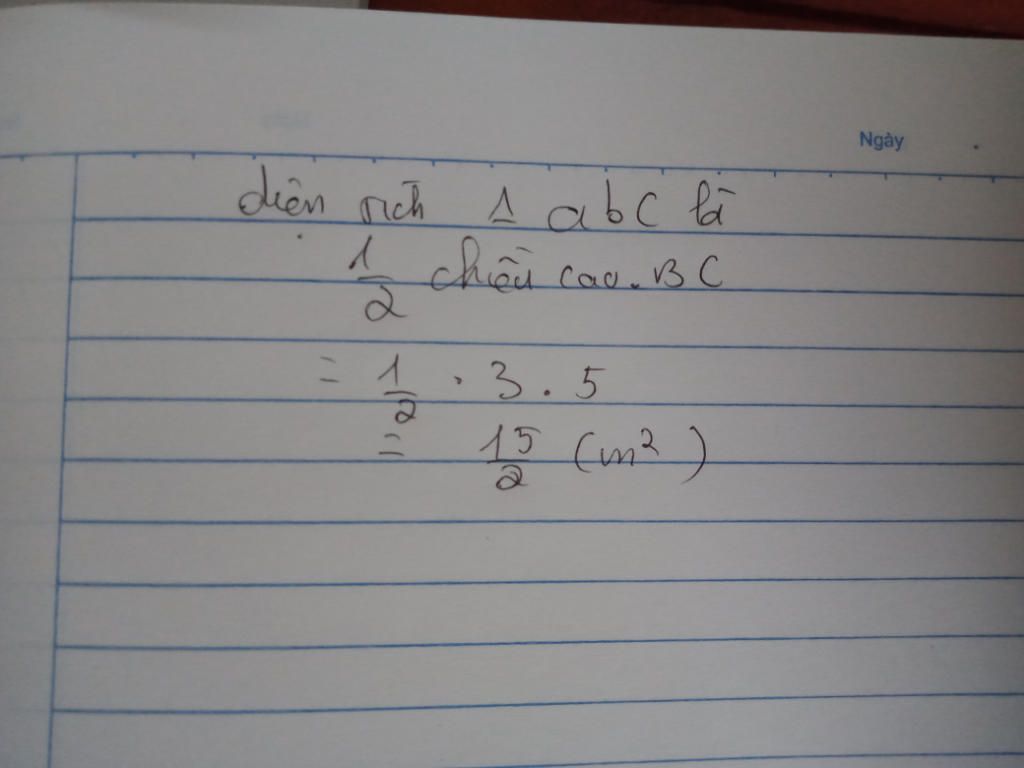 Ngày
diện tích 1 abC là
1/2 chiều cao. BC
= 1/2 . 3 . 5
= 15/2 (m²)